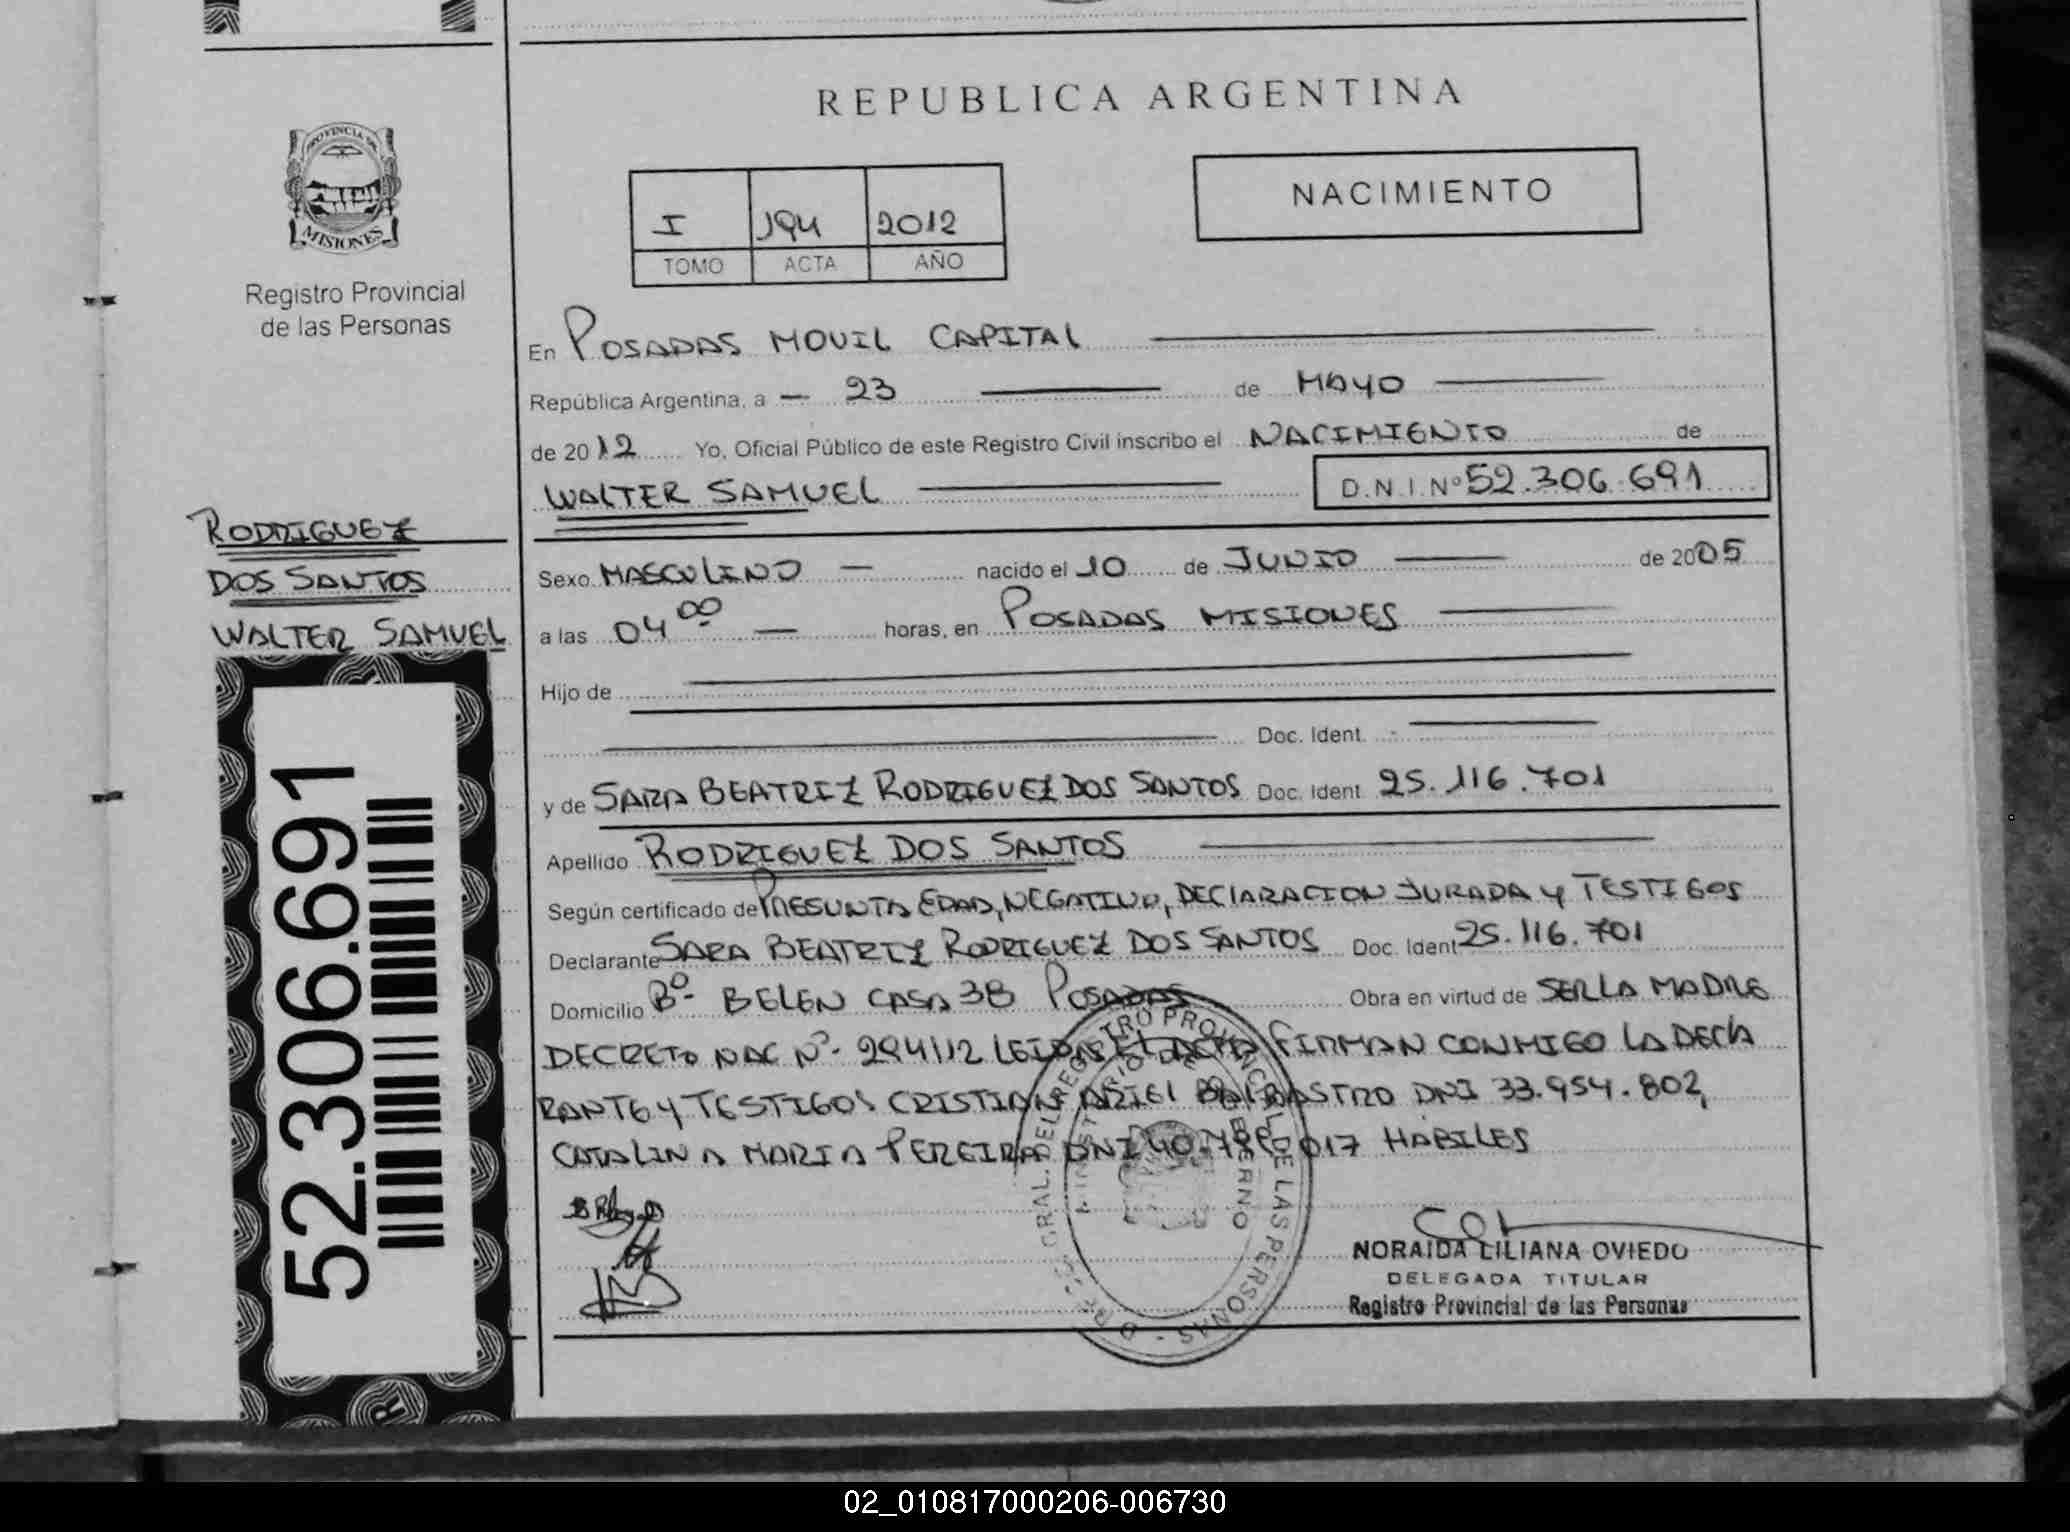 REPUBLICA ARGENTINA
PROVINCIA DE
MISIONES
Registro Provincial
de las Personas
NACIMIENTO
I 194 2012
TOMO ACTA AÑO
En POSADAS MOVIL CAPITAL
República Argentina, a - 23 de MAYO
de 2012 Yo, Oficial Público de este Registro Civil inscribo el NACIMIENTO de
WALTER SAMUEL D.N.I. Nº 52.306.691
RODRIGUEZ
DOS SANTOS
WALTER SAMUEL
52.306.691
Sexo MASCULINO nacido el 10 de JUNIO de 2005
a las 04 00 horas, en POSADAS MISIONES
Hijo de
Doc. Ident.
y de SARA BEATRIZ RODRIGUEZ DOS SANTOS Doc. Ident. 25.116.701
Apellido RODRIGUEZ DOS SANTOS
Según certificado de PRESUNTA EDAD, NEGATIVO, DECLARACION JURADA Y TESTIGOS
Declarante SARA BEATRIZ RODRIGUEZ DOS SANTOS Doc. Ident 25.116.701
Domicilio Bº- BELEN CASA 38 POSADAS Obra en virtud de SER LA MADRE
DECRETO NAC Nº- 294/12 LEIDA EL ACTA FIRMAN CONMIGO LA DECLA
RANTE Y TESTIGOS CRISTIAN ARIEL BALBASTRO DNI 33.954.802,
CATALINA MARIA PEREIRA DNI 017 HABILES
REGISTRO PROVINCIAL DE LAS PERSONAS
NORAIDA LILIANA OVIEDO
DELEGADA TITULAR
Registro Provincial de las Personas
02_010817000206-006730